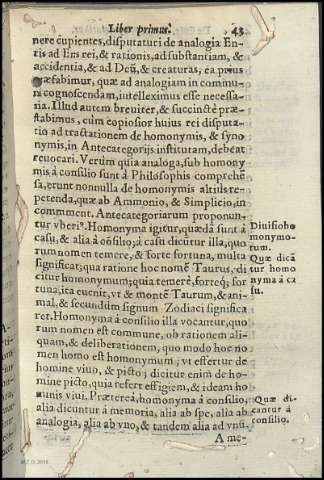 Liber primus. 43
nere cupientes, disputaturi de analogia En-
tis ad Ens rei, & rationis, ad substantiam, &
accidentia, & ad Deū, & creaturas, ea prius
præfabimur, quæ ad analogiam in commu-
ni cognoscendam, intelleximus esse necessa-
ria. Illud autem breuiter, & succinctè præ-
stabimus, cum copiosior huius rei disputa-
tio ad tractationem de homonymis, & syno
nymis, in Antecategorijs institutam, debeat
reuocari. Verùm quia analoga, sub homony
mis à consilio sunt à Philosophis comprehē
sa, erunt nonnulla de homonymis altiùs re-
petenda, quæ ab Ammonio, & Simplicio, in
comment. Antecategoriarum proponun-
tur vberiꝰ. Homonyma igitur, quædā sunt à
casu, & alia à cōsilio; à casu dicūtur illa, quo
rum nomen temere, & forte fortuna, multa
significat; qua ratione hoc nomē Taurus, di
citur homonymum; quia temerè, forteq́; for
tuna, ita euenit, vt & montē Taurum, & ani-
mal, & secundùm signum Zodiaci significa
ret. Homonyma à consilio illa vocantur, quo
rum nomen est commune, ob rationem ali-
quam, & deliberationem, quo modo hoc no
men homo est homonymum; vt effertur de
homine viuo, & picto; dicitur enim de ho-
mine picto, quia refert effigiem, & ideam ho
minis viui. Præterea, homonyma à consilio,
alia dicuntur à memoria, alia ab spe, alia ab
analogia, alia ab vno, & tandem alia ad vnū.
A me-
Diuisio ho
monymo-
rum.
Quæ dicā
tur homo
nyma à ca
su.
Quæ di-
cantur à
consilio.